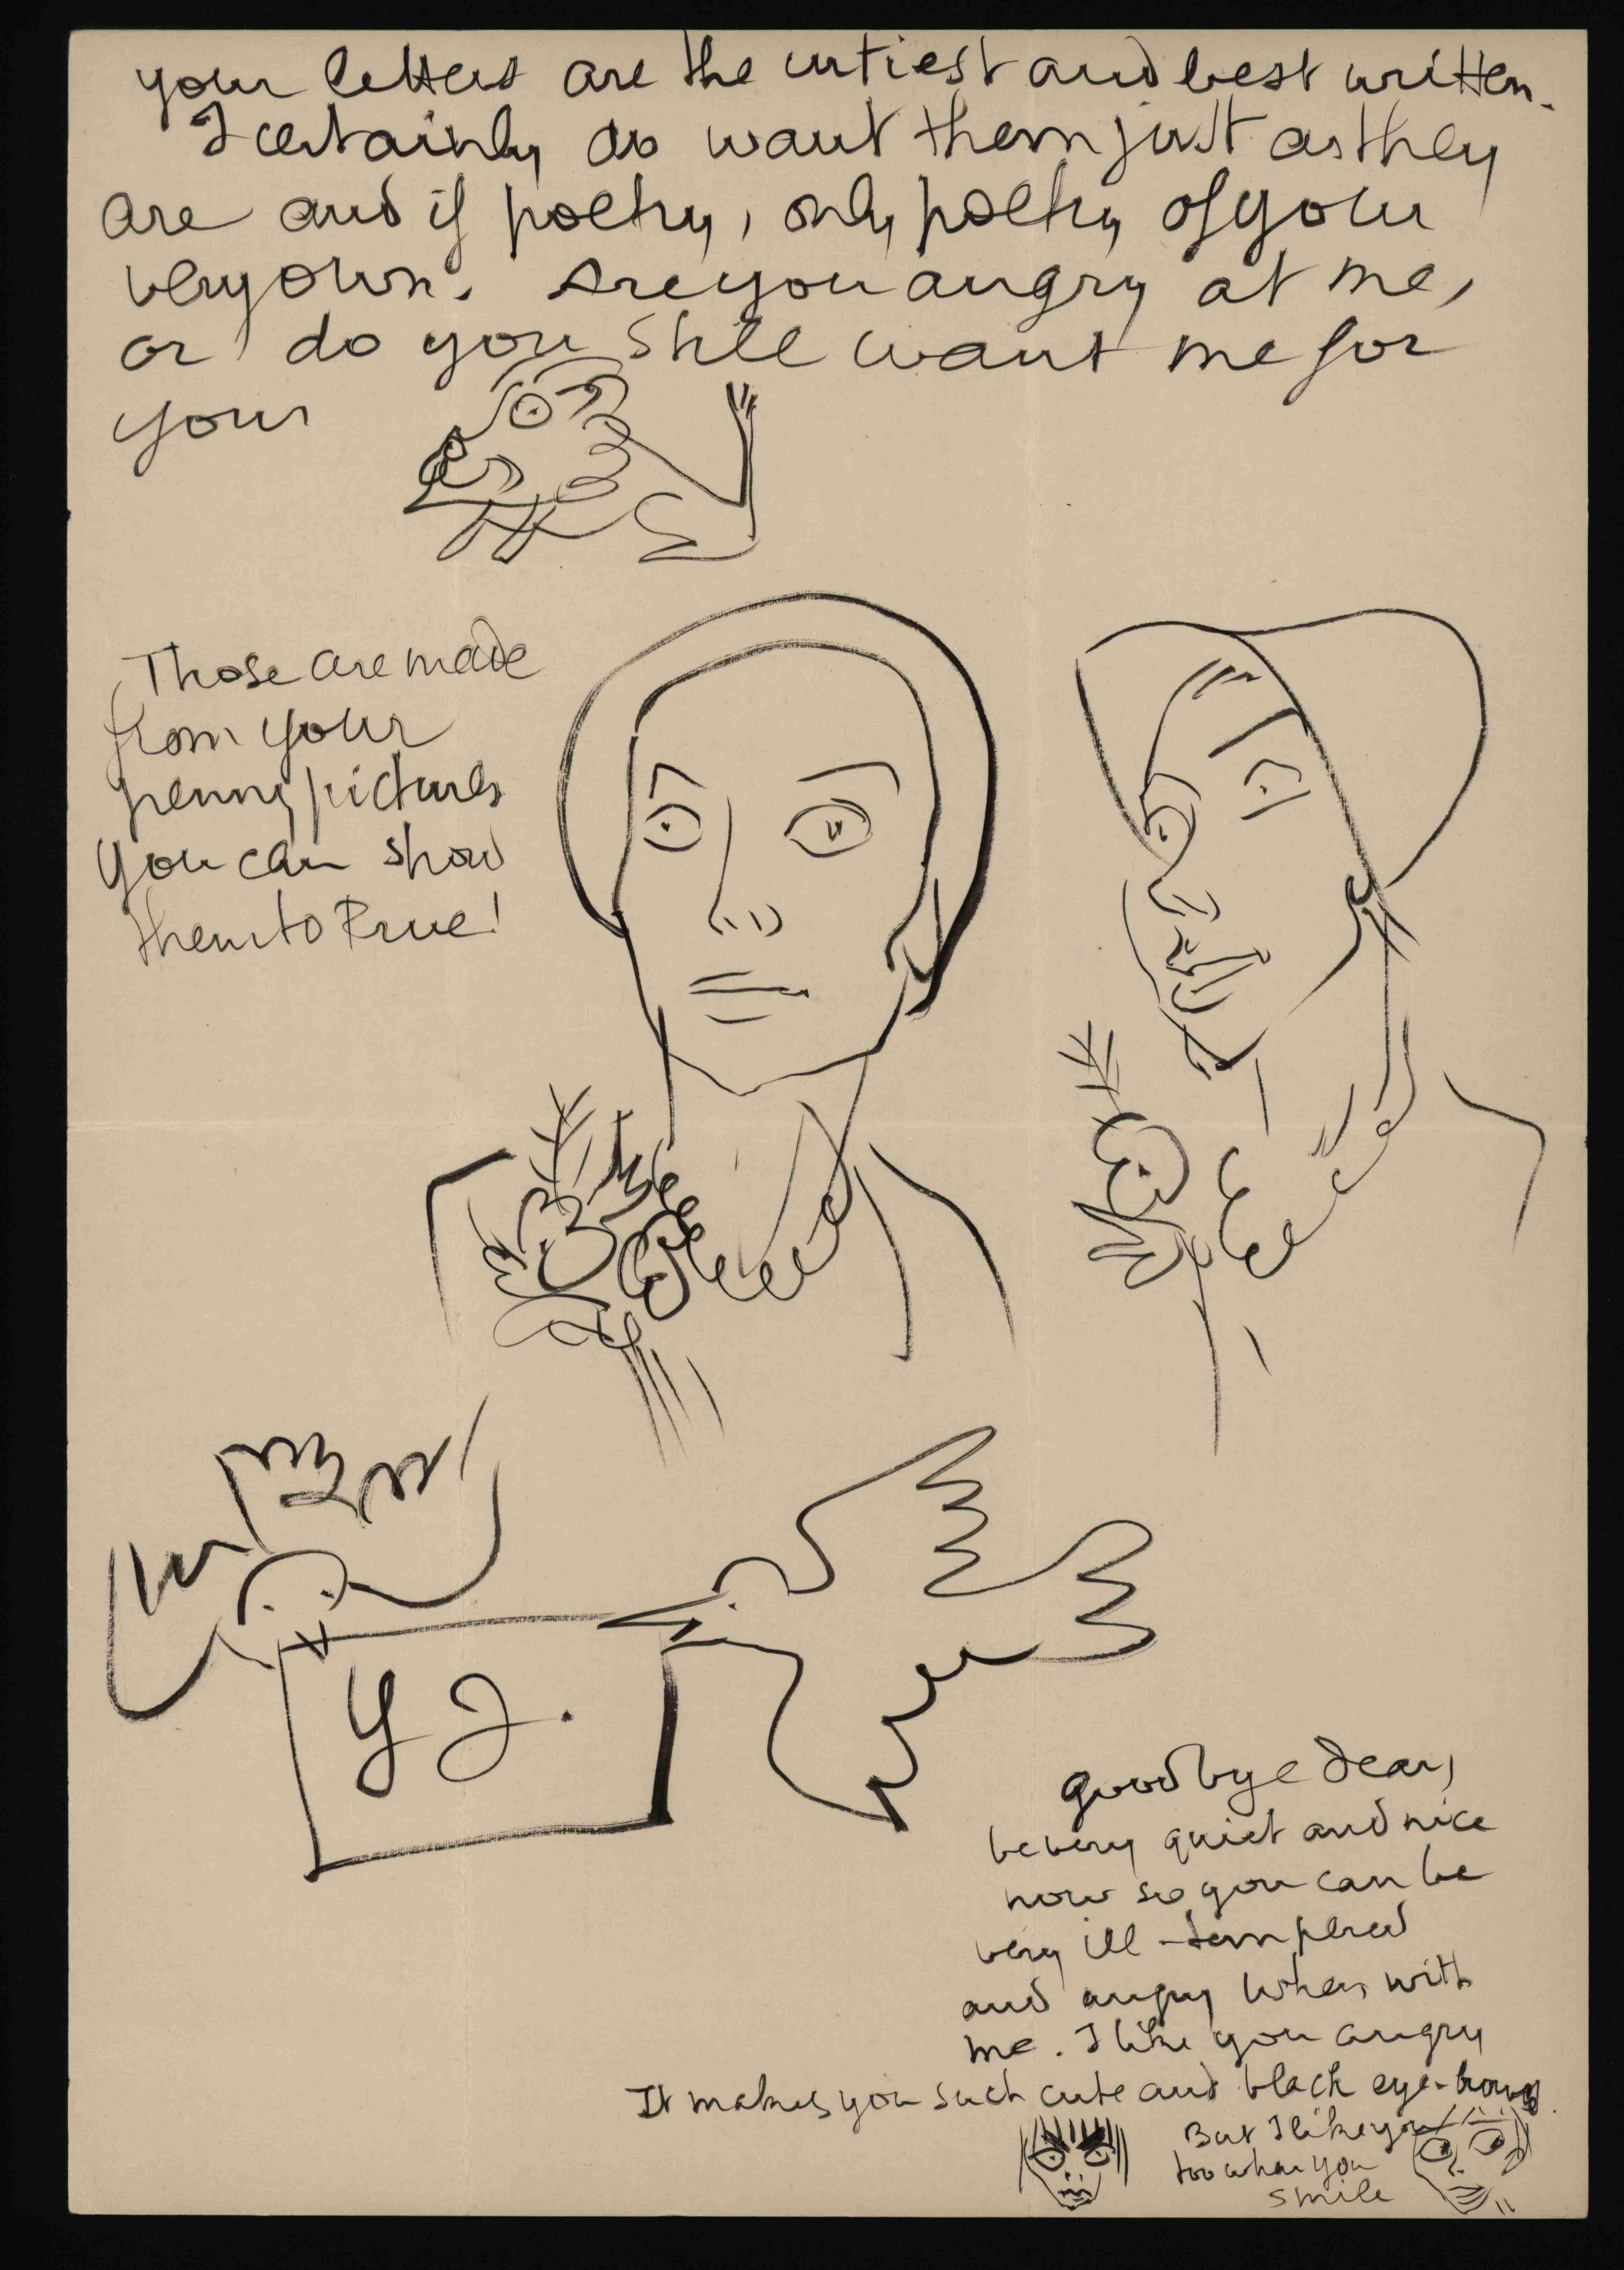 your letters are the cutiest and best written.
I certainly do want them just as they
are and if poetry, only poetry of your
very own. Are you angry at me,
or do you still want me for
your
Those are made
from your
penny pictures
you can show
them to Prue!
Y J.
goodbye dear,
be very quiet and nice
now so you can be
very ill-tempered
and angry when with
me. I like you angry
It makes you such cute and black eye-brows.
But I like you
too when you
smile